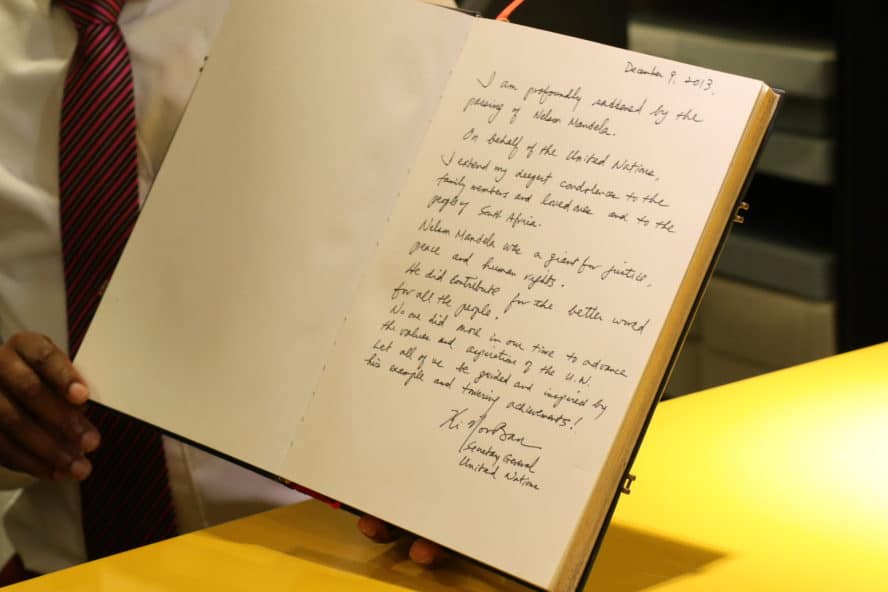 December 9, 2013.
I am profoundly saddened by the
passing of Nelson Mandela.
On behalf of the United Nations,
I extend my deepest condolences to the
family members and loved ones and to the
people of South Africa.
Nelson Mandela was a giant for justice,
peace and human rights.
He did contribute for the better world
for all the people.
No one did more in our time to advance
the values and aspiration of the U.N.
Let all of us be guided and inspired by
his example and towering achievements!
Ki Moon Ban
Secretary General
United Nations